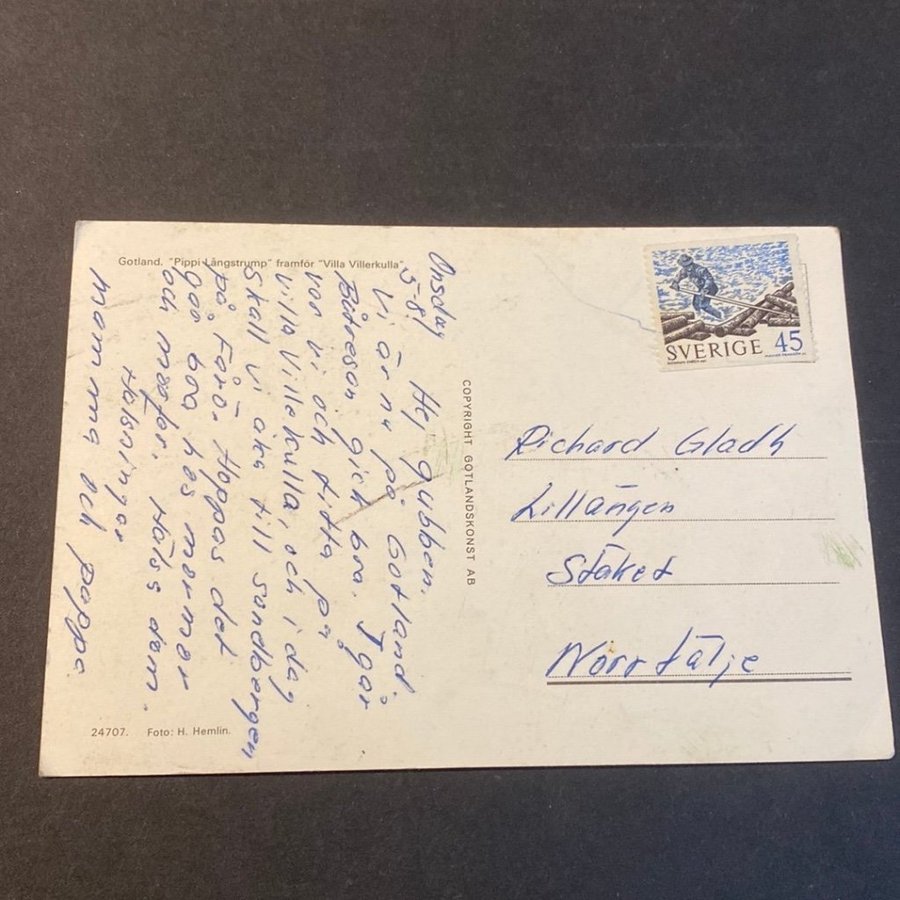 Gotland. "Pippi Långstrump" framför "Villa Villerkulla".
Onsdag
5-8
Hej gubben.
Vi är nu på Gotland.
Båtresan gick bra. Igår
var vi och titta på
villa Villekulla, och i dag
skall vi åka till sundbergen
på Fårö. Hoppas det
går bra hos mormor
och morfor. Hälss dem.
Hälsningar
mamma och pappa
24707. Foto: H. Hemlin.
COPYRIGHT GOTLANDSKONST AB
SVERIGE 45
Richard Gladh
Lillängen
Stäket
Norrtälje